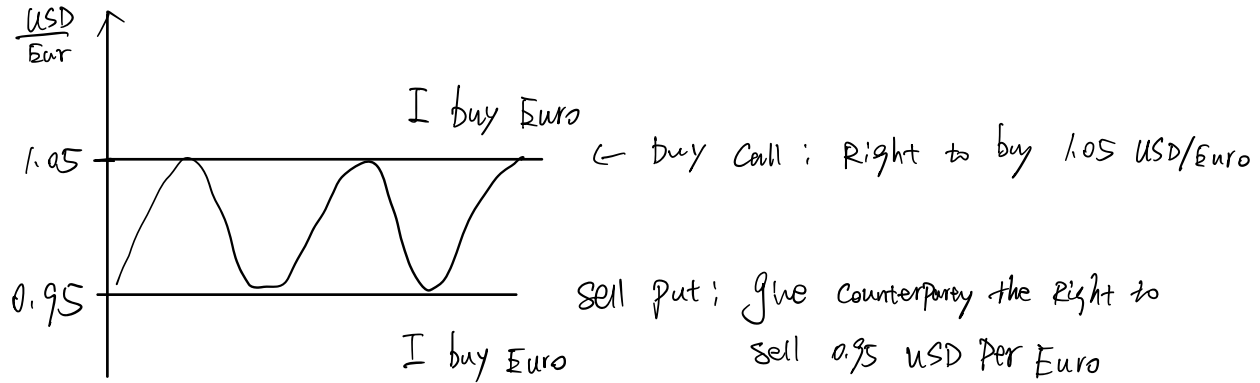 USD
Eur
I buy Euro
1.05
← buy call : Right to buy 1.05 USD/Euro
0.95
sell put : give counterparty the Right to
sell 0.95 USD Per Euro
I buy Euro